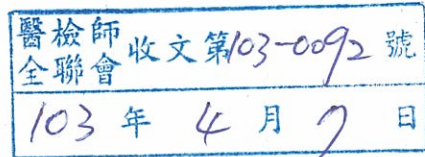 醫檢師全聯會收文第103-0092號
103年4月7日